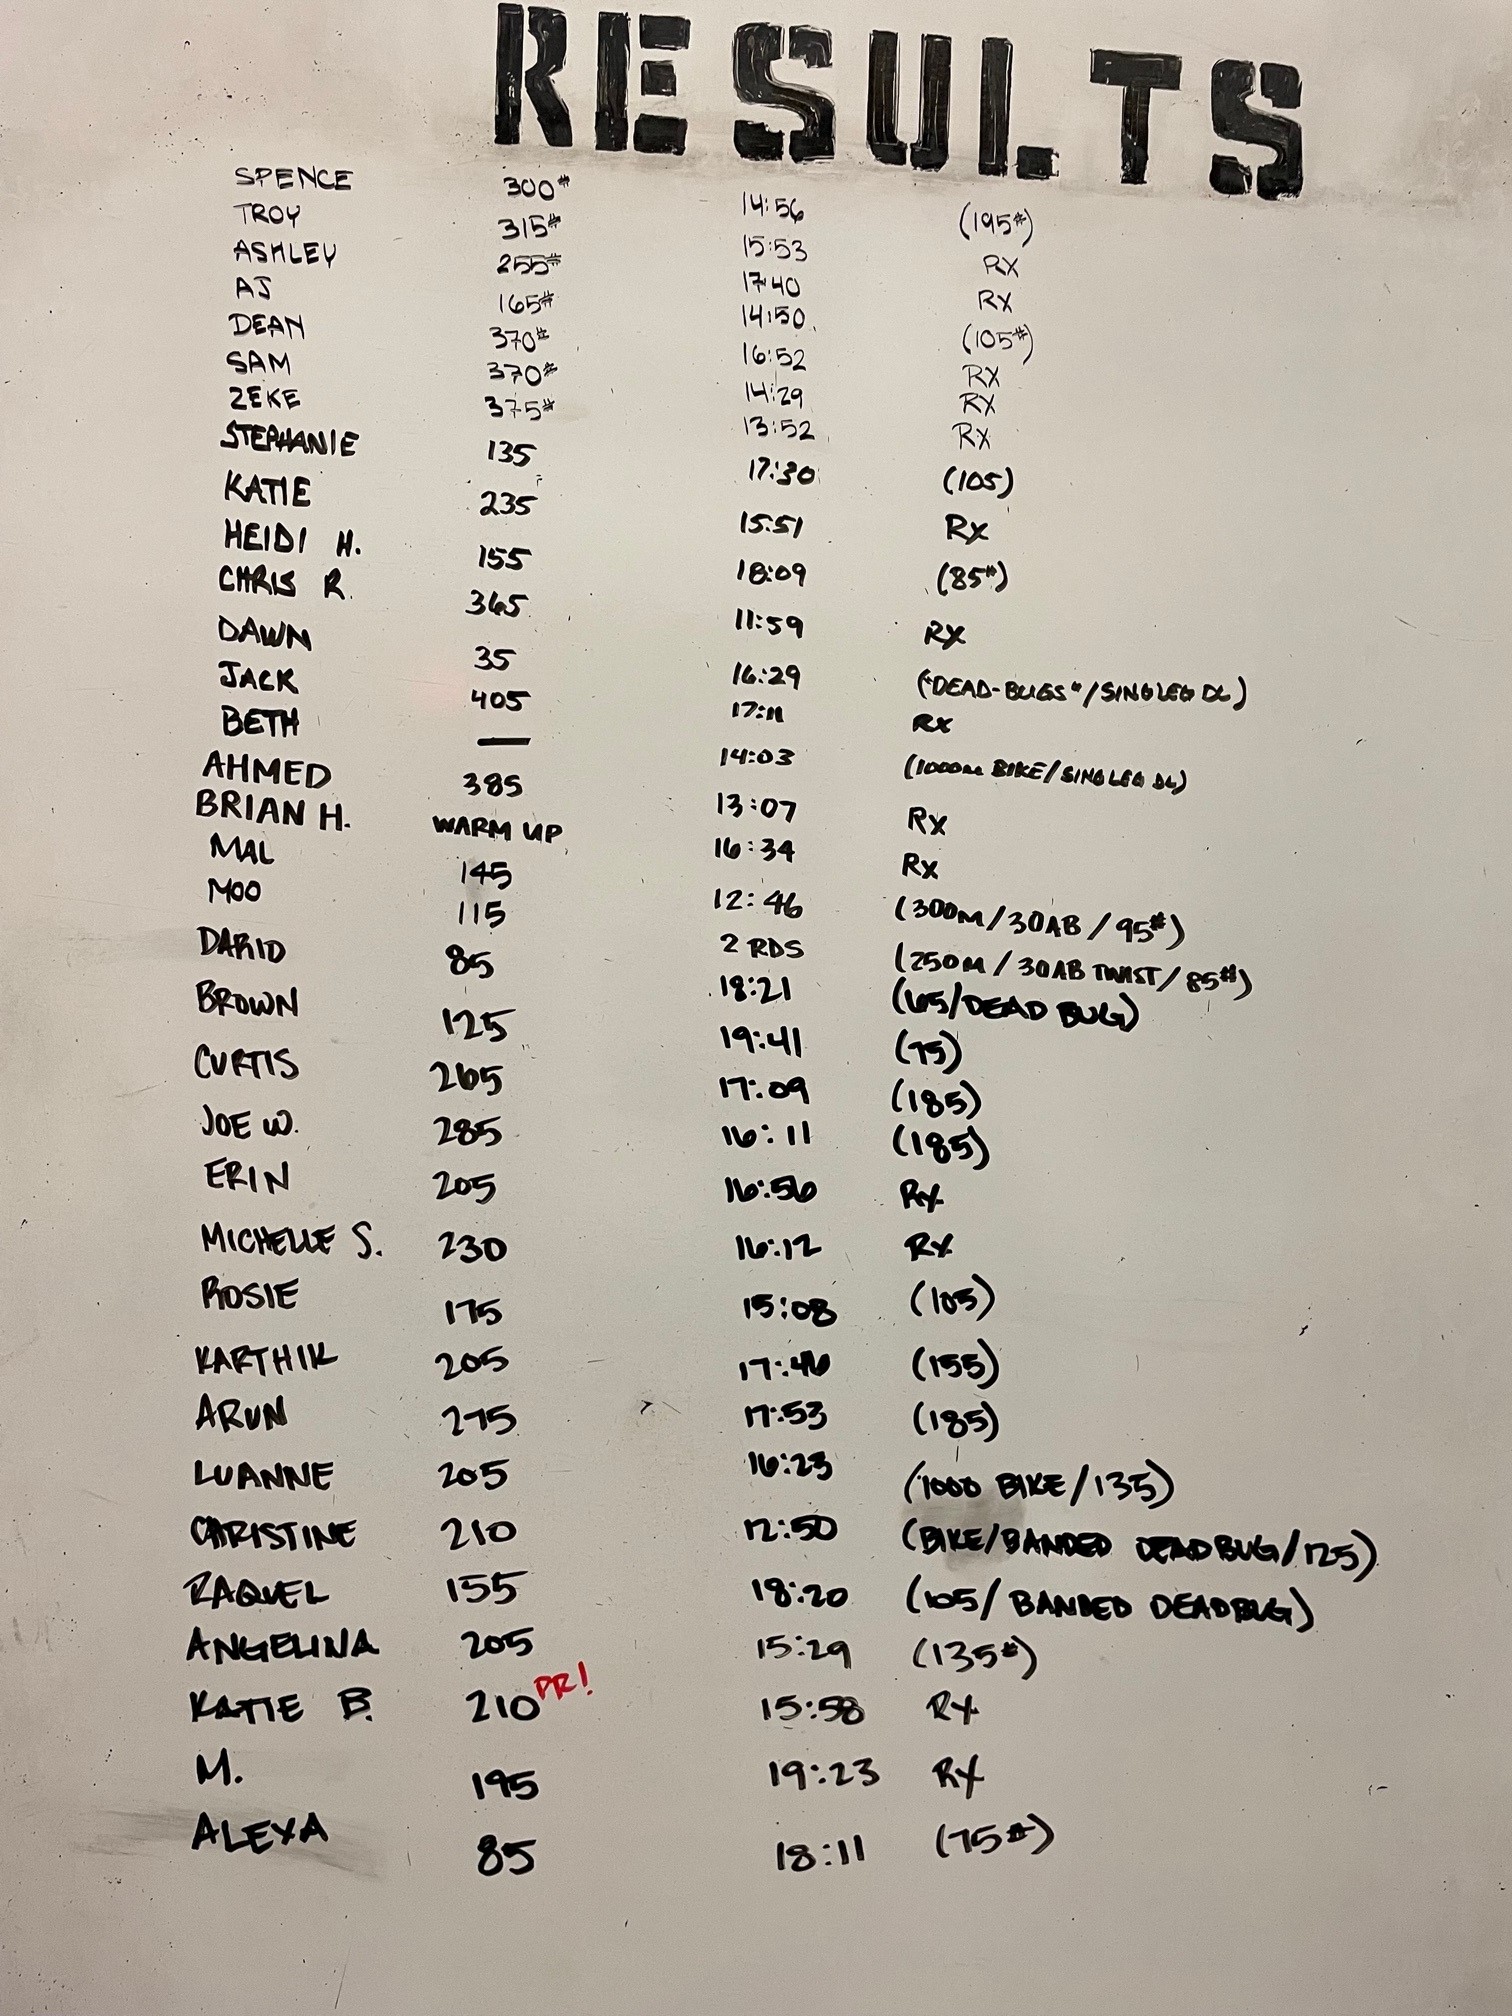 RESULTS
SPENCE 300# 14:56 (195#)
TROY 315# 15:53 RX
ASHLEY 255# 17:40 RX
AJ 165# 14:50 (105#)
DEAN 370# 16:52 RX
SAM 370# 14:29 RX
ZEKE 375# 13:52 RX
STEPHANIE 135 17:30 (105)
KATIE 235 15:51 RX
HEIDI H. 155 18:09 (85#)
CHRIS R. 365 11:59 RX
DAWN 35 16:29 ("DEAD-BUGS"/SINGLEG DL)
JACK 405 17:11 RX
BETH — 14:03 (1000M BIKE/SINGLEG DL)
AHMED 385 13:07 RX
BRIAN H. WARM UP 16:34 RX
MAL 145 12:46 (300M/30AB/95#)
MOO 115 2 RDS (250M/30AB TWIST/85#)
DARIO 85 18:21 (65/DEAD BUG)
BROWN 125 19:41 (75)
CURTIS 265 17:09 (185)
JOE W. 285 16:11 (185)
ERIN 205 16:56 RX
MICHELLE S. 230 16:12 RX
ROSIE 175 15:08 (105)
KARTHIK 205 17:46 (155)
ARUN 275 17:53 (185)
LUANNE 205 16:23 (1000 BIKE/135)
CHRISTINE 210 12:50 (BIKE/BANDED DEADBUG/125)
RAQUEL 155 18:20 (105/BANDED DEADBUG)
ANGELINA 205 15:29 (135#)
KATIE B. 210 PR! 15:58 RX
M. 195 19:23 RX
ALEXA 85 18:11 (75#)